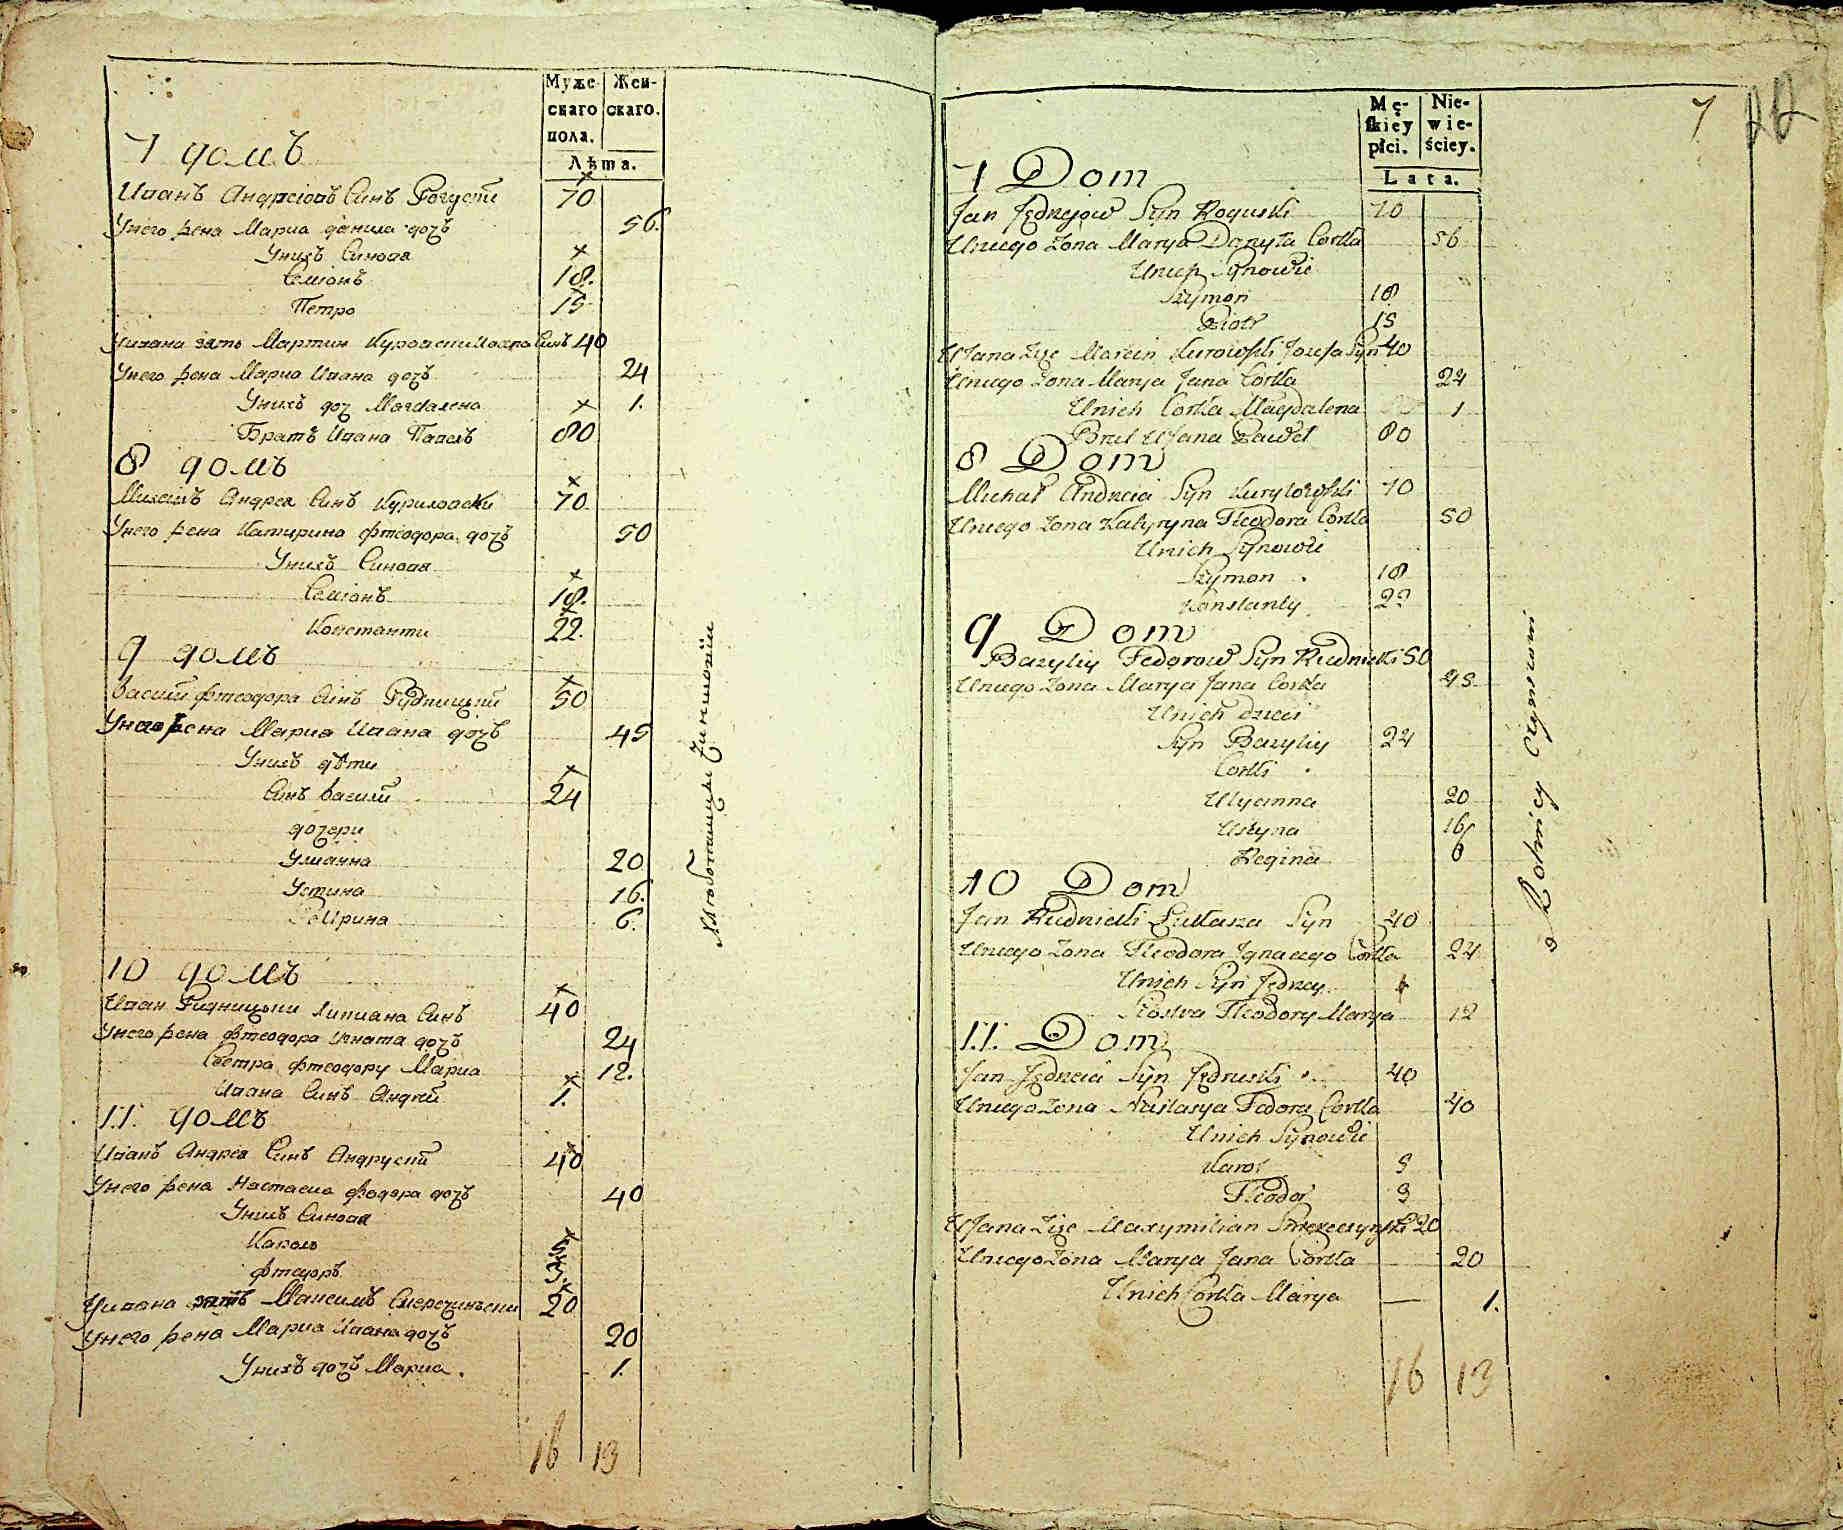 Муже- Жен-
скаго скаго.
пола.
Лѣта.
7 домъ
Иванъ Андреювъ Синъ Рогуски 70
Унего жена Мариа данила дочъ 56.
Унихъ Синова
Семіонъ 18.
Петро 15
Уивана зать Мартин Куровски Иосепа Синъ 40
Унего жена Мариа Ивана дочъ 24
Унихъ доч Магдалена 1.
Братъ Ивана Павелъ 80
8 домъ
Михаилъ Андреа Синъ Куриловски 70
Унего жена Катирина фтеодора дочъ 50
Унихъ Синова
Семіонъ 18.
Константи 22.
9 домъ
Васили фтеодора Синъ Рудницкий 50
Унего жена Мариа Ивана дочъ 45
Унихъ дѣти
Синъ Васили 24
дочери
Улианна 20
Устина 16.
Ирина 6.
10 домъ
Иван Рудницки Синъ 40
Унего жена фтеодора Игната дочъ 24
Сестра фтеодору Мариа 12.
Ивана Синъ Андрей 1.
11. домъ
Иванъ Андреа Синъ Андруски 40
Унего жена Настасиа фодора дочъ 40
Унихъ Синова
Кароль 5
фтеодоръ 3.
Уивана зать Максимъ Смеречинъски 20
Унего жена Мариа Ивана дочъ 20
Унихъ дочъ Мариа. 1.
16 13
7
Mę- Nie-
skiey wie-
płci. ściey.
Lata.
7 Dom
Jan Jędrzejow Syn Roguski 70
Uniego Zona Marya Danyła Corka 56
Unich Synowie
Szymon 18
Piotr 15
U Jana Zięc Marcin Kurowski Jozefa Syn 40
Uniego Zona Marya Jana Corka 24
Unich Corka Magdalena 1
Brat U Jana Paweł 80
8 Dom
Michał Andrzeia Syn Kuryłowski 70
Uniego Zona Katyryna Tteodora Corka 50
Unich Synowie
Szymon 18
Konstanty 22
9 Dom
Bazyliy Fedorow Syn Rudnicki 50
Uniego Zona Marya Jana Corka 45
Unich dzieci
Syn Bazyliy 24
Corki
Ulyanna 20
Ustyna 16
Regina 6
10 Dom
Jan Rudnicki Łukasza Syn 40
Uniego Zona Tteodora Jgnacego Corka 24
Unich Syn Jędrzey 1
Siostra Tteodory Marya 12
11. Dom
Jan Jędrzeia Syn Jędruski 40
Uniego Zona Nastasya Fedora Corka 40
Unich Synowie
Karol 5
Tteodor 3
U Jana Zięc Maxymilian Smereczynski 20
Uniego Zona Marya Jana Corka 20
Unich Corka Marya — 1.
16 13
Rolnicy Czynszowi